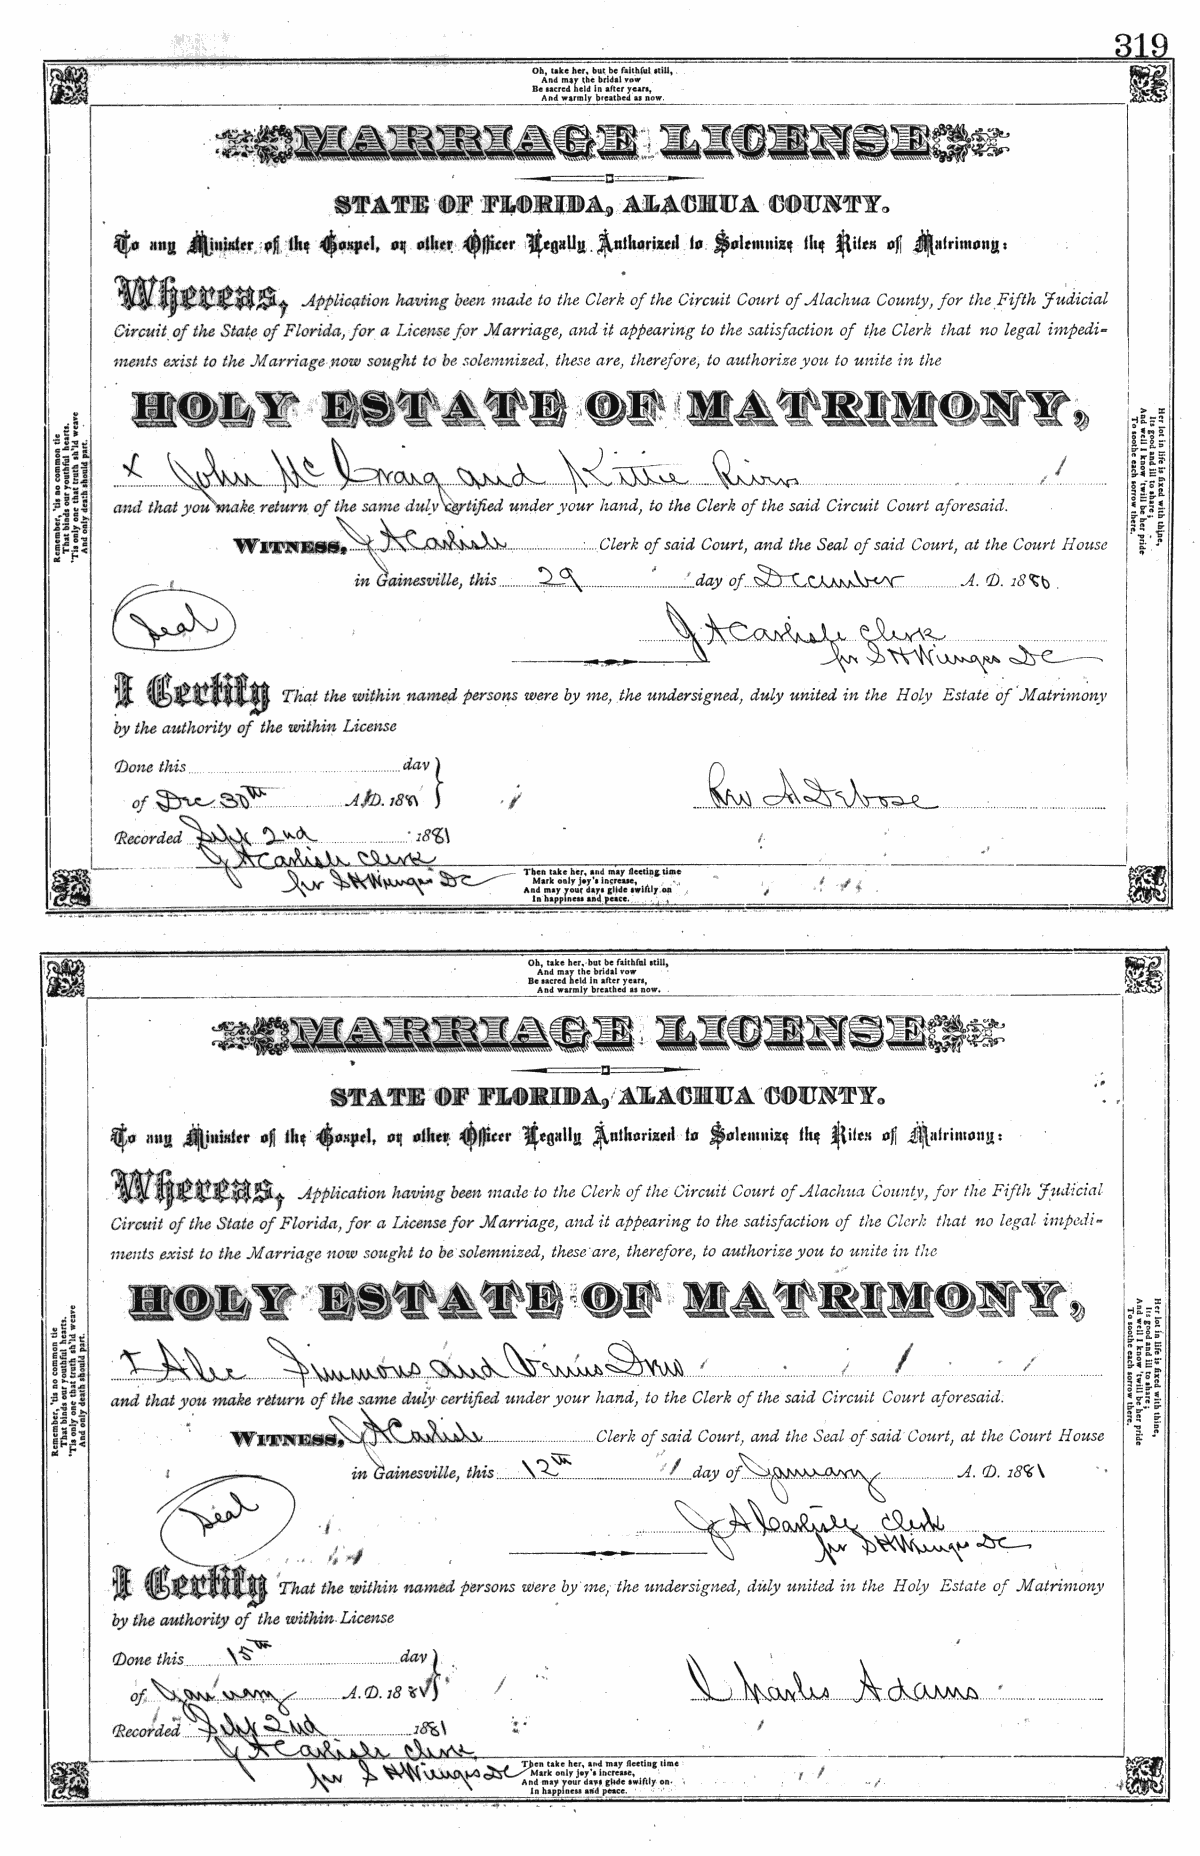 319
Oh, take her, but be faithful still,
And may the bridal vow
Be sacred held in after years,
And warmly breathed as now.
MARRIAGE LICENSE
STATE OF FLORIDA, ALACHUA COUNTY.
To any Minister of the Gospel, or other Officer Legally Authorized to Solemnize the Rites of Matrimony:
Whereas, Application having been made to the Clerk of the Circuit Court of Alachua County, for the Fifth Judicial
Circuit of the State of Florida, for a License for Marriage, and it appearing to the satisfaction of the Clerk that no legal impedi-
ments exist to the Marriage now sought to be solemnized, these are, therefore, to authorize you to unite in the
HOLY ESTATE OF MATRIMONY,
x John Mc Craig and Kittie Rivers
and that you make return of the same duly certified under your hand, to the Clerk of the said Circuit Court aforesaid.
WITNESS, J A Carlisle Clerk of said Court, and the Seal of said Court, at the Court House
in Gainesville, this 29 day of December A. D. 1880.
Seal
J A Carlisle Clerk
per S H Wienges DC
I Certify That the within named persons were by me, the undersigned, duly united in the Holy Estate of Matrimony
by the authority of the within License
Done this day
of Dec 30th A. D. 1881
Rev A Debose
Recorded Sept 2nd 1881
J A Carlisle Clerk
per S H Wienges DC
Remember, 'tis no common tie
That binds our youthful hearts.
'Tis only one that truth sh'ld weave
And only death should part.
Her lot in life is fixed with thine,
Its good and ill to share;
And well I know 'twill be her pride
To soothe each sorrow there.
Then take her, and may fleeting time
Mark only joy's increase,
And may your days glide swiftly on
In happiness and peace.
Oh, take her, but be faithful still,
And may the bridal vow
Be sacred held in after years,
And warmly breathed as now.
MARRIAGE LICENSE
STATE OF FLORIDA, ALACHUA COUNTY.
To any Minister of the Gospel, or other Officer Legally Authorized to Solemnize the Rites of Matrimony:
Whereas, Application having been made to the Clerk of the Circuit Court of Alachua County, for the Fifth Judicial
Circuit of the State of Florida, for a License for Marriage, and it appearing to the satisfaction of the Clerk that no legal impedi-
ments exist to the Marriage now sought to be solemnized, these are, therefore, to authorize you to unite in the
HOLY ESTATE OF MATRIMONY,
Alec Simmons and Venus Drew
and that you make return of the same duly certified under your hand, to the Clerk of the said Circuit Court aforesaid.
WITNESS, J A Carlisle Clerk of said Court, and the Seal of said Court, at the Court House
in Gainesville, this 12th day of January A. D. 1881
Seal
J A Carlisle Clerk
per S H Wienges DC
I Certify That the within named persons were by me, the undersigned, duly united in the Holy Estate of Matrimony
by the authority of the within License
Done this 15th day
of January A. D. 1881
Charles Adams
Recorded Sept 2nd 1881
J A Carlisle Clerk
per S H Wienges DC
Remember, 'tis no common tie
That binds our youthful hearts.
'Tis only one that truth sh'ld weave
And only death should part.
Her lot in life is fixed with thine,
Its good and ill to share;
And well I know 'twill be her pride
To soothe each sorrow there.
Then take her, and may fleeting time
Mark only joy's increase,
And may your days glide swiftly on
In happiness and peace.